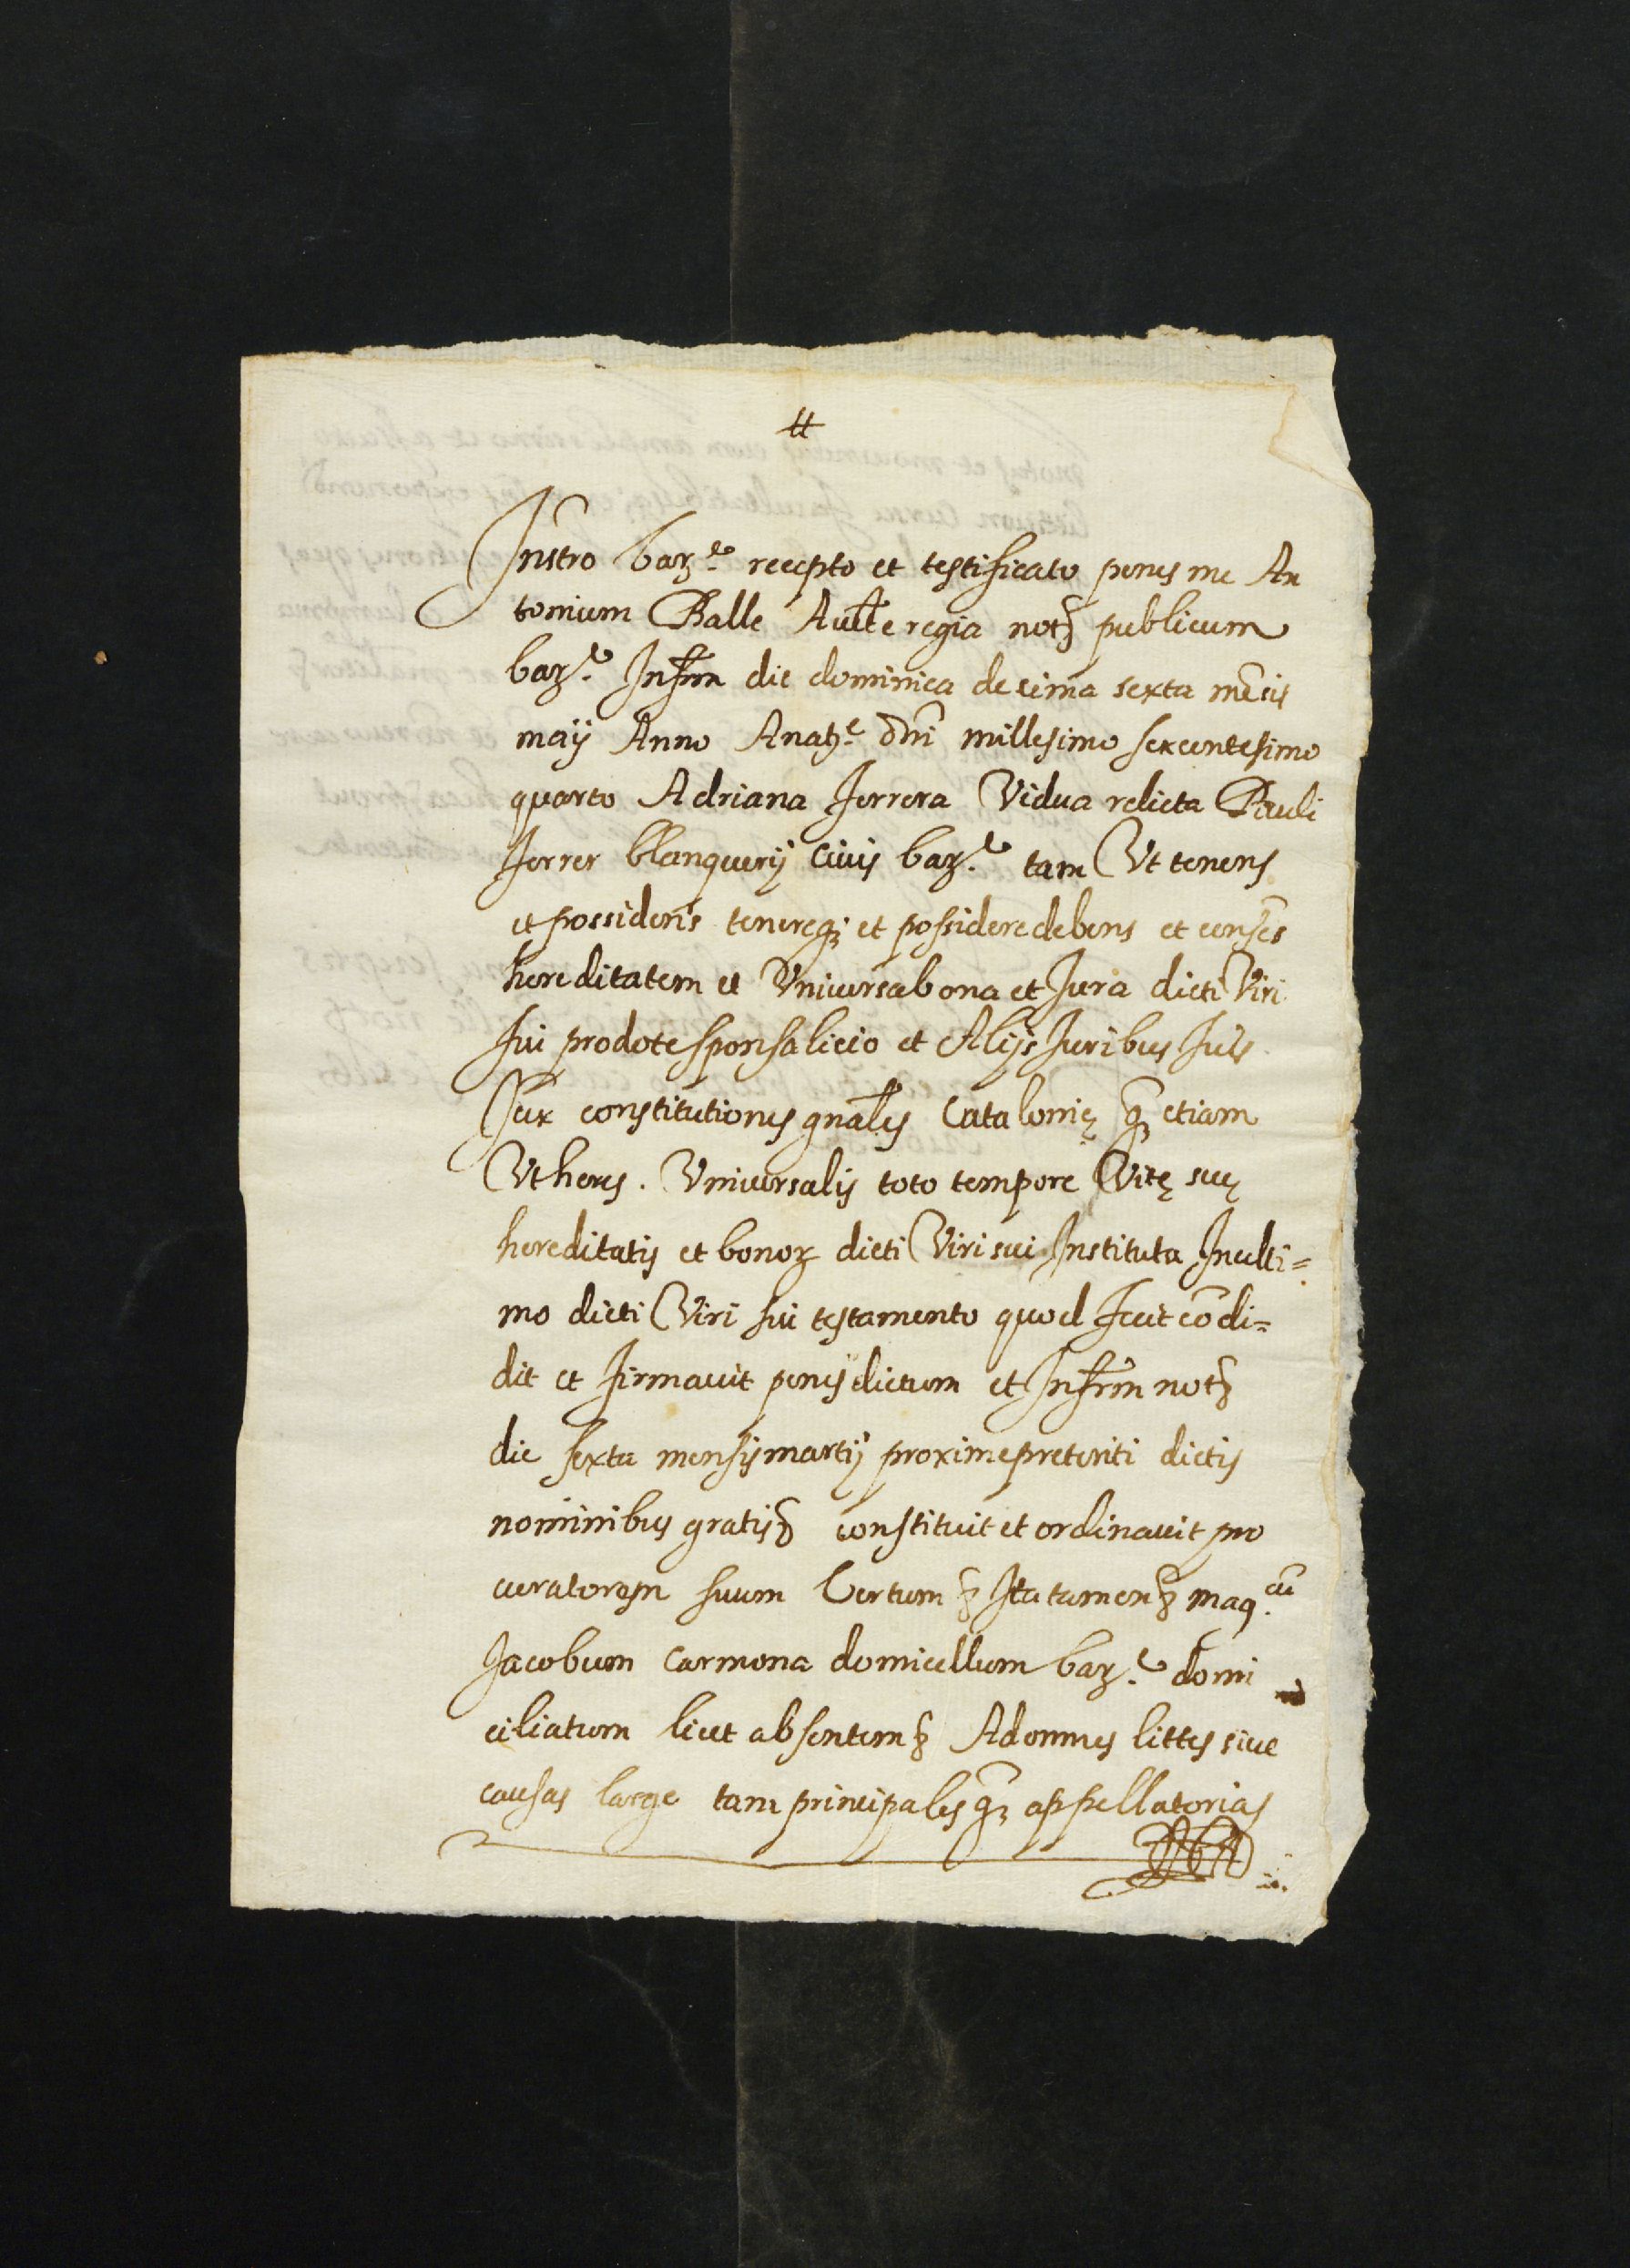 Instro barᵉ. recepto et testificato penes me An
tonium Balle Aucte regia notz publicum
barᵉ. Infrm die dominica desima sexta mẽsis
maij Anno Anatᵉ. dñi millesimo sexcentesimo
quarto Adriana ferrera Vidua relicta Pauli
ferrer blanquerij civis barᵉ. tam Ut tenens
et possidens tenereqz et possidere debens et censẽs
hereditatem et Universa bona et Jura dicti Viri
sui pro dote sponsalicio et Alijs Juribus suis
Jux constitutiones gnales Catalonię qz etiam
Ut heres. Universalis toto tempore Vitę suę
hereditatis et bonoꝝ dicti Viri sui Instituta In ulti=
mo dicti Viri sui testamento quod fecit cõdi=
dit et firmavit penes dictum et Infrm notz
die sexta mensis martij proxime preteriti dictis
nominibus gratis&c constituit et ordinavit pro
curatorem suum Certum &c Ita tamen &c magᶜᵘ.
Jacobum Carmona domicellum barᵉ. domi
ciliatum licet absentem &c Ad omnes littes sive
causas large tam principales qz appellatorias